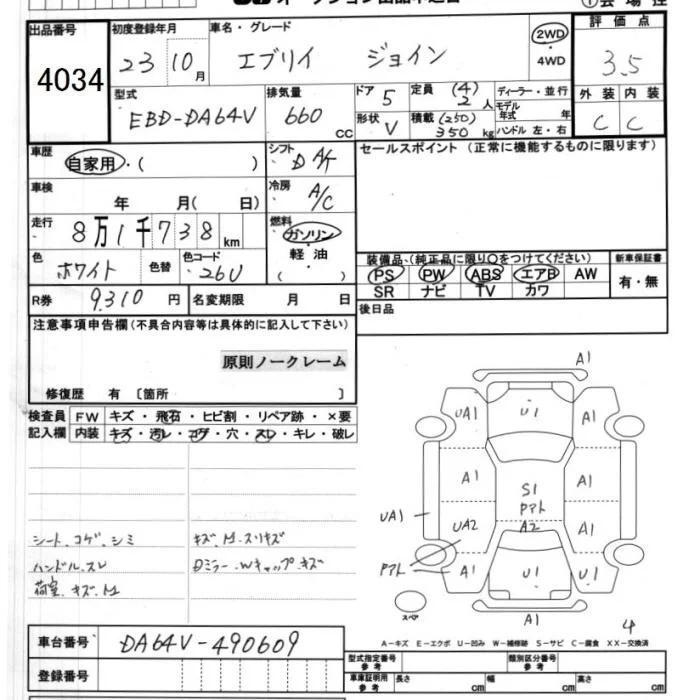 オークション出品申込書
出品番号
4034
初度登録年月
23 10月
車名・グレード
エブリイ ジョイン
2WD
・
4WD
評価点
3.5
外装 内装
C C
型式
EBD-DA64V
排気量
660
CC
ドア 5
形状 V
定員 (4)
2 人
積載 (250)
350 kg
ディーラー・並行
モデル
年式 年
ハンドル 左・右
車歴
自家用・( )
シフト
D A/T
セールスポイント (正常に機能するものに限ります)
車検
年 月( 日)
冷房
A/C
走行
8万1千738km
燃料
ガソリン
・
軽油
( )
色
ホワイト
色替
色コード
26U
装備品・(純正品に限り○をつけてください)
PS PW ABS エアB AW
SR ナビ TV カワ
新車保証書
有・無
R券 9,310 円
名変期限 月 日
後日品
注意事項申告欄(不具合内容等は具体的に記入して下さい)
原則ノークレーム
修復歴 有 〔箇所 〕
検査員
記入欄
FW キズ・飛石・ヒビ割・リペア跡・×要
内装 キズ・汚レ・コゲ・穴・スレ・キレ・破レ
シート、コゲ、シミ
ハンドル、スレ
荷室、キズ、凹
キズ、凹、スリキズ
Dミラー、Wキャップ、キズ
A1
UA1 U1 A1
A1 S1 A1
アト
UA1 UA2 A2 A1
アト A1 U1 U1
スペア
A1
4
A-キズ E-エクボ U-凹み W-補修跡 S-サビ C-腐食 XX-交換済
車台番号 DA64V-490609
登録番号
型式指定番号
参考
類別区分番号
参考
車庫証明用
参考
長さ cm 幅 cm 高さ cm